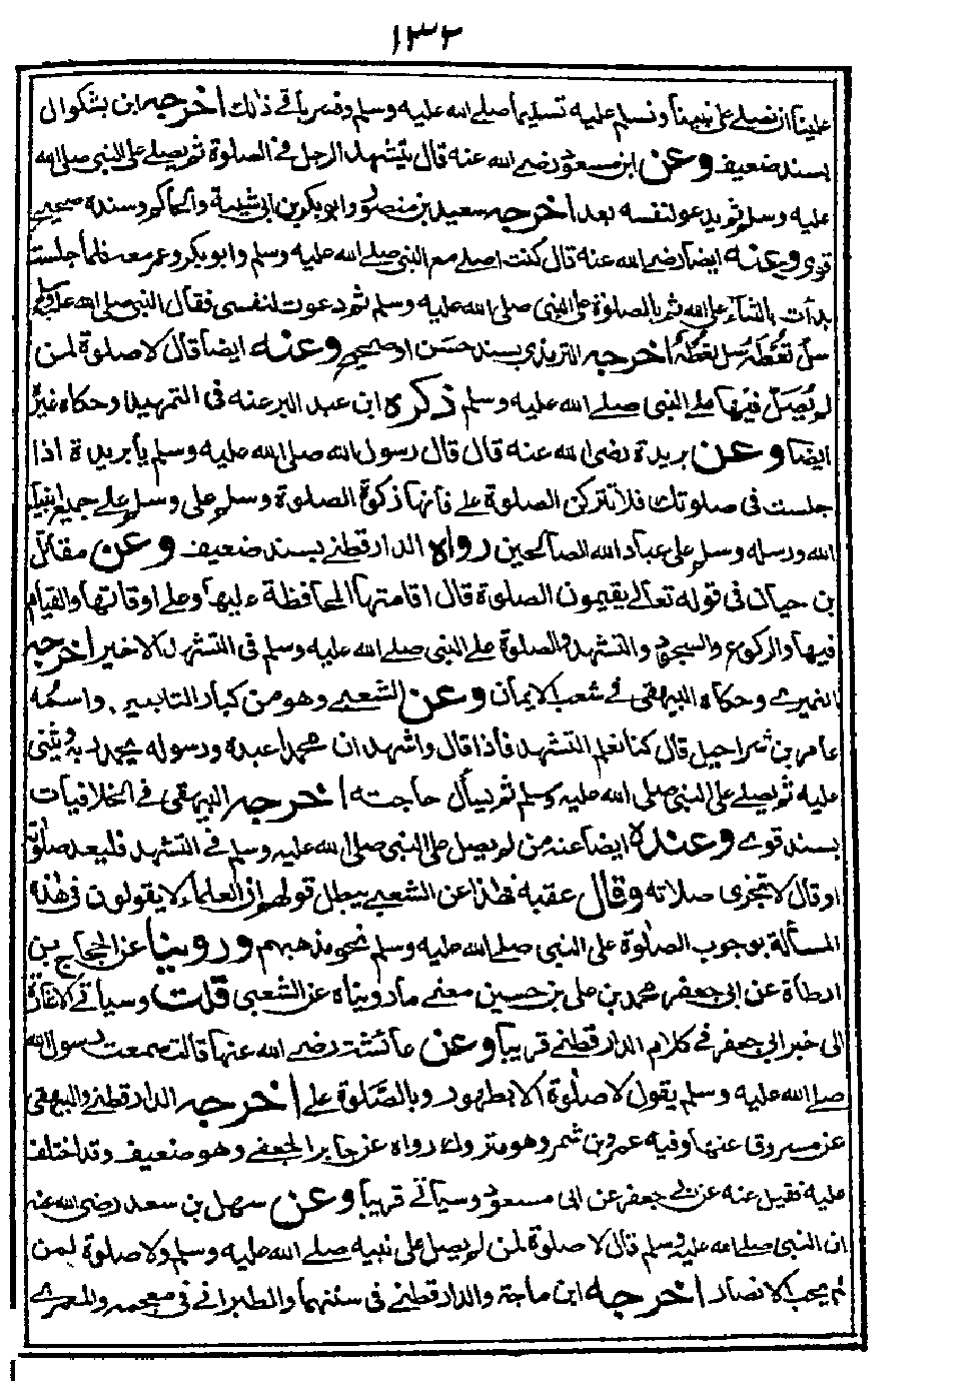 ١٣٢
علينا ان نصلے على نبينا ونسلم عليه تسليما صلے الله عليه وسلم وضرباقے ذلك اخرجه ابن بشكوال
بسند ضعيف وعن ابن مسعود رضے الله عنه قال يتشهد الرجل فے الصلوة ثم يصلے على النبى صلى الله
عليه وسلم ثم يدعو لنفسه بعد اخرجه سعيد بن منصور وابو بكر بن ابى شيبة والحاكم وسنده صحيح
قوى وعنه ايضا رضے الله عنه قال كنت اصلے مع النبى صلے الله عليه وسلم وابو بكر وعمر معه فلما جلست
بدأت بالثناء على الله ثم بالصلوة على النبى صلى الله عليه وسلم ثم دعوت لنفسى فقال النبى صلى الله عليه وسلم
سل تعطه سل تعطه اخرجه الترمذى بسند حسن او صحيح وعنه ايضا قال لا صلوة لمن
لم يصل فيها على النبى صلے الله عليه وسلم ذكره ابن عبد البر عنه فى التمهيد وحكاه غيره
ايضا وعن بريدة رضى الله عنه قال قال رسول الله صلى الله عليه وسلم يا بريدة اذا
جلست فى صلوتك فلا تتركن الصلوة على فانها زكوة الصلوة وسلم على وسلم على جميع انبياء
الله ورسله وسلم على عباد الله الصالحين رواه الدارقطنے بسند ضعيف وعن مقاتل
بن حيان فى قوله تعالے يقيمون الصلوة قال اقامتها المحافظة عليها وعلى اوقاتها والقيام
فيها والركوع والسجود والتشهد والصلوة على النبى صلے الله عليه وسلم فى التشهد الاخير اخرجه
النميرے وحكاه البيهقى فے شعب الايمان وعن الشعبى وهو من كبار التابعين واسمه
عامر بن شراحيل قال كنا نعلم التشهد فاذا قال واشهد ان محمدا عبده ورسوله يحمد ربه ويثنى
عليه ثم يصلے على النبى صلى الله عليه وسلم ثم يسأل حاجته اخرجه البيهقى فے الخلافيات
بسند قوے وعنده ايضا عنه من لم يصل على النبى صلى الله عليه وسلم فے التشهد فليعد صلوته
او قال لا تجزى صلاته وقال عقبه فهذا عن الشعبى يبطل قولهم ان العلماء لا يقولون فى هذه
المسألة بوجوب الصلوة على النبى صلے الله عليه وسلم نحو مذهبهم وروينا عن الحجاج بن
ارطأة عن ابى جعفر محمد بن على بن حسين معنے ما رويناه عن الشعبى قلت وسياتے الاشارة
الى خبر ابى جعفر فے كلام الدارقطنے قريبا وعن عائشة رضے الله عنها قالت سمعت رسول الله
صلے الله عليه وسلم يقول لا صلوة الا بطهور وبالصلوة على اخرجه الدارقطنے والبيهقى
عن مسروق عنها وفيه عمرو بن شمر وهو متروك رواه عن جابر الجعفے وهو ضعيف وقد اختلف
عليه فقيل عنه عن ابى جعفر عن ابى مسعود وسياتے قريبا وعن سهل بن سعد رضى الله عنه
ان النبى صلے الله عليه وسلم قال لا صلوة لمن لم يصل على نبيه صلے الله عليه وسلم ولا صلوة لمن
لم يحب الانصار اخرجه ابن ماجة والدارقطنے فى سننهما والطبرانے فى معجمه والمعمرے